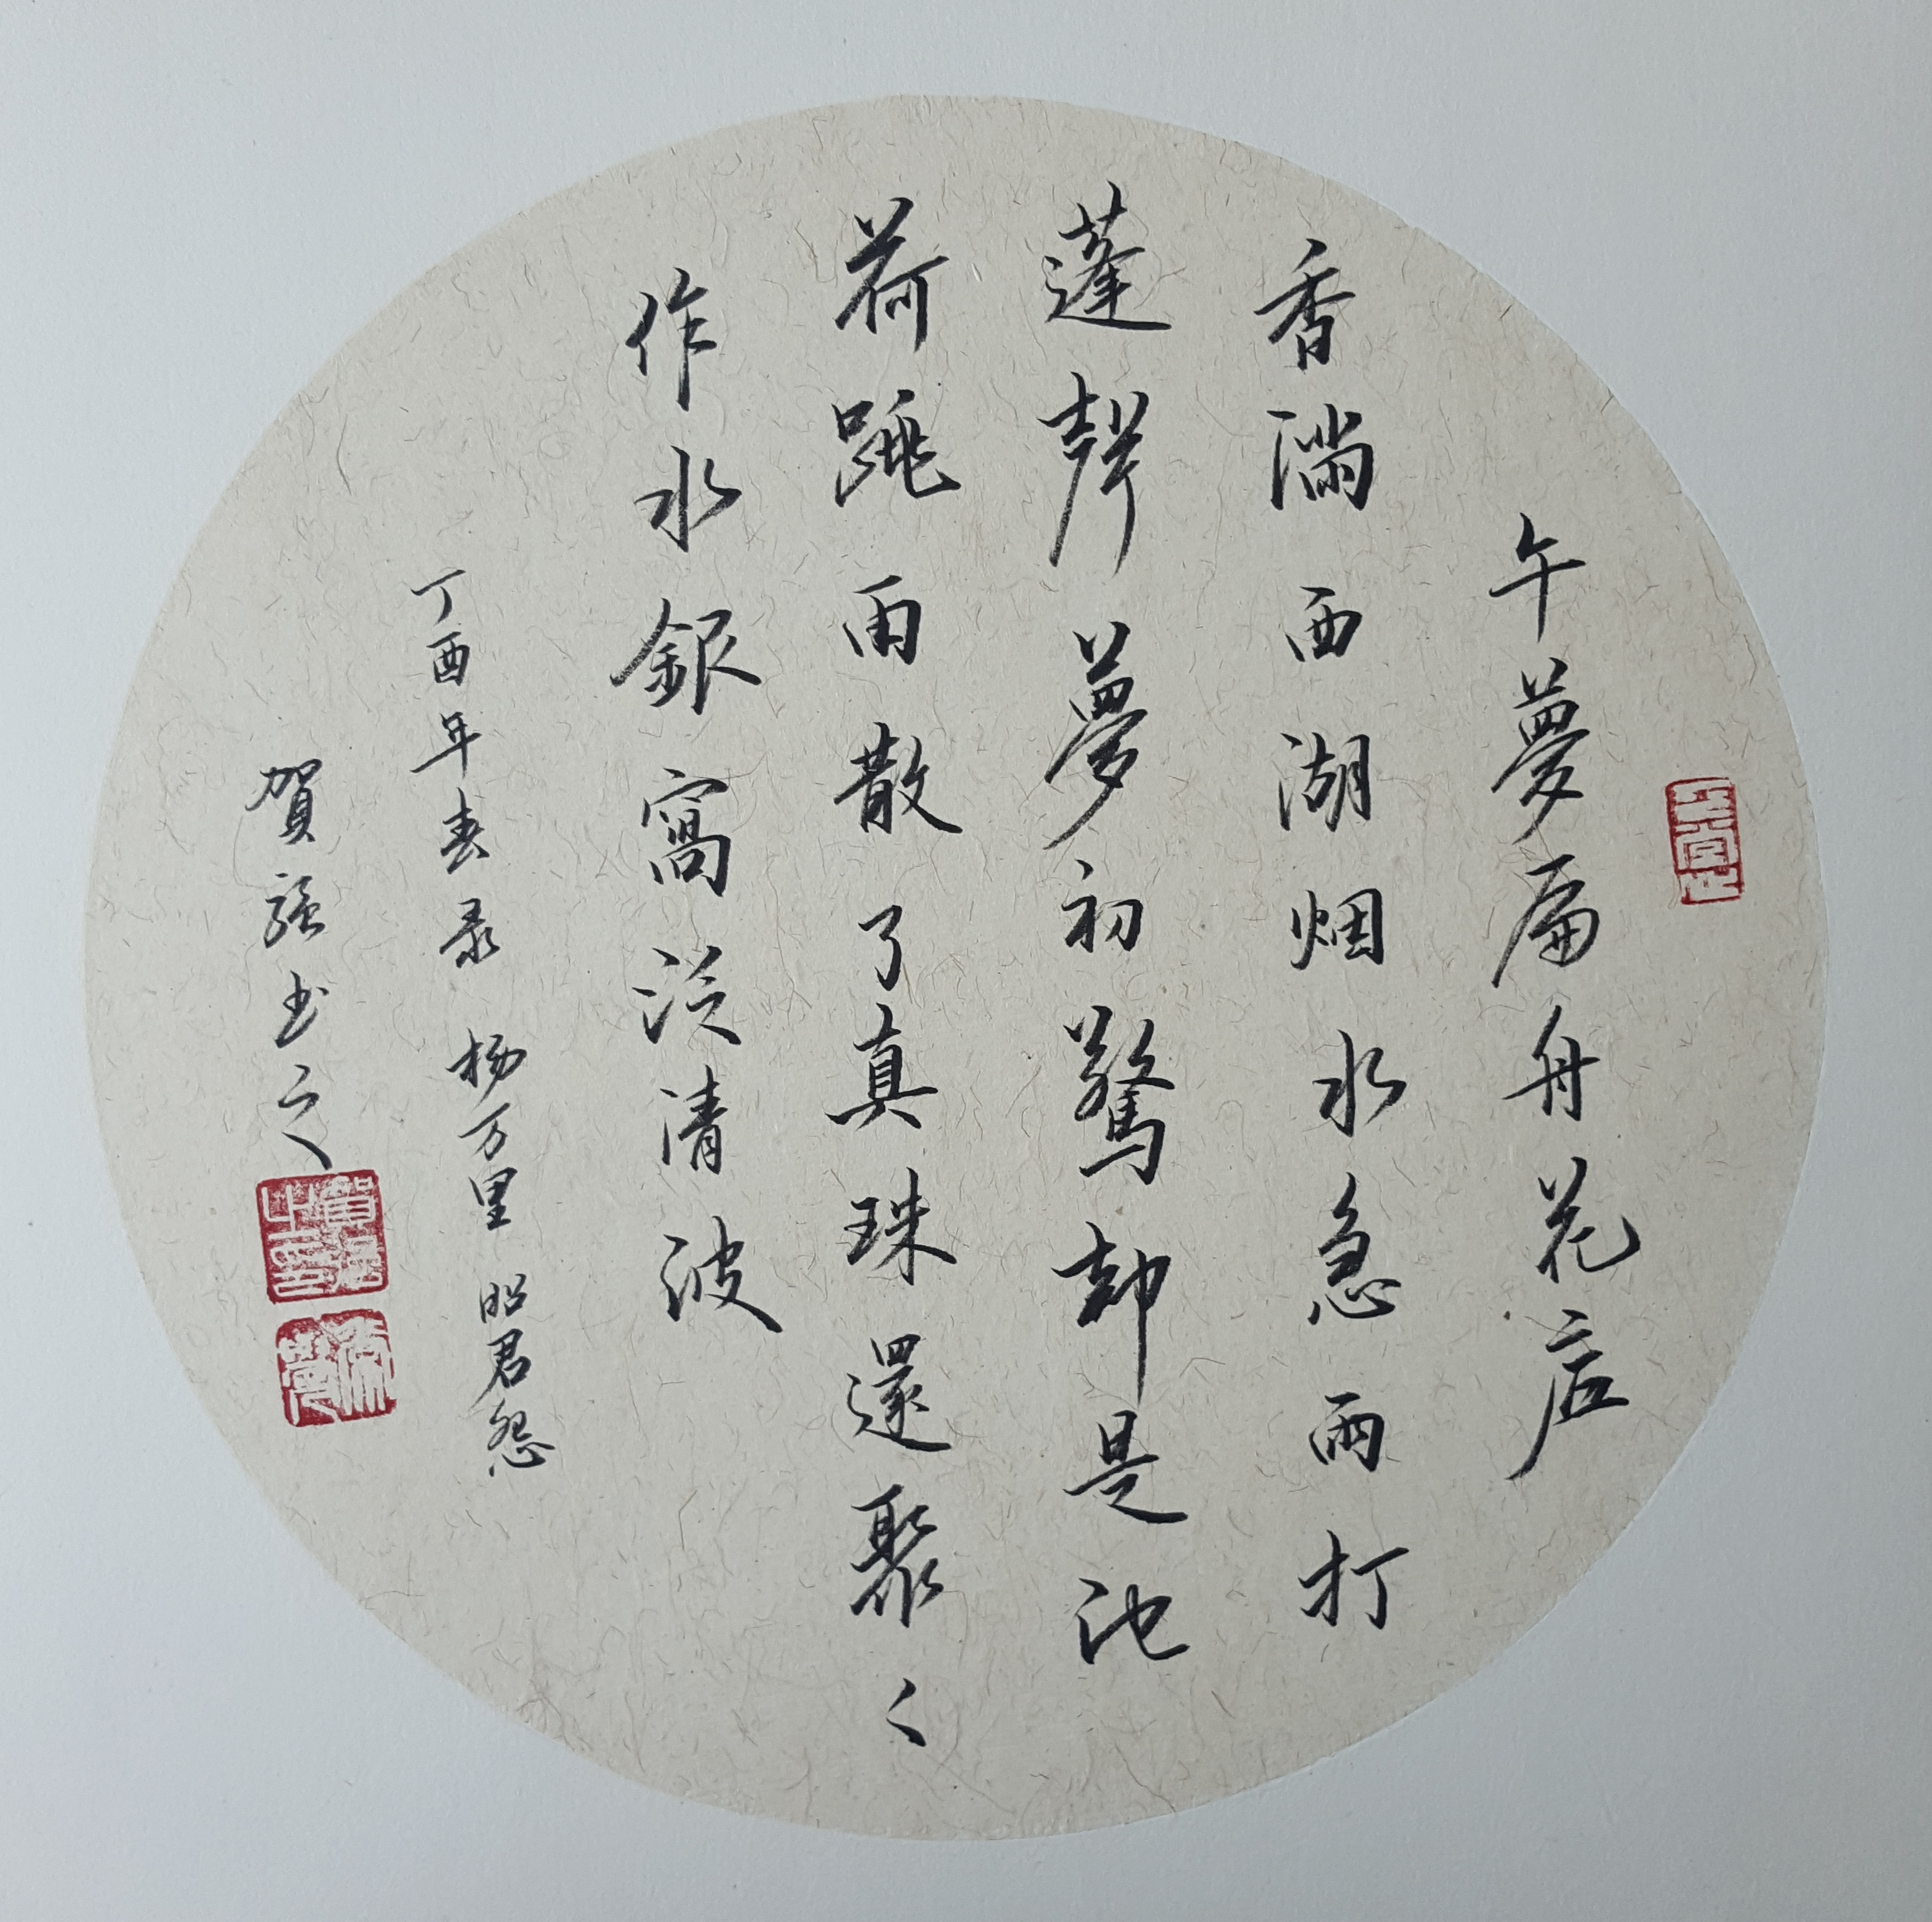 午夢扁舟花底
香滿西湖烟水急雨打
蓬聲夢初驚却是池
荷跳雨散了真珠還聚々
作水銀窩泛清波
丁酉年春录 杨万里 昭君怨
賀強书之
賀強之印